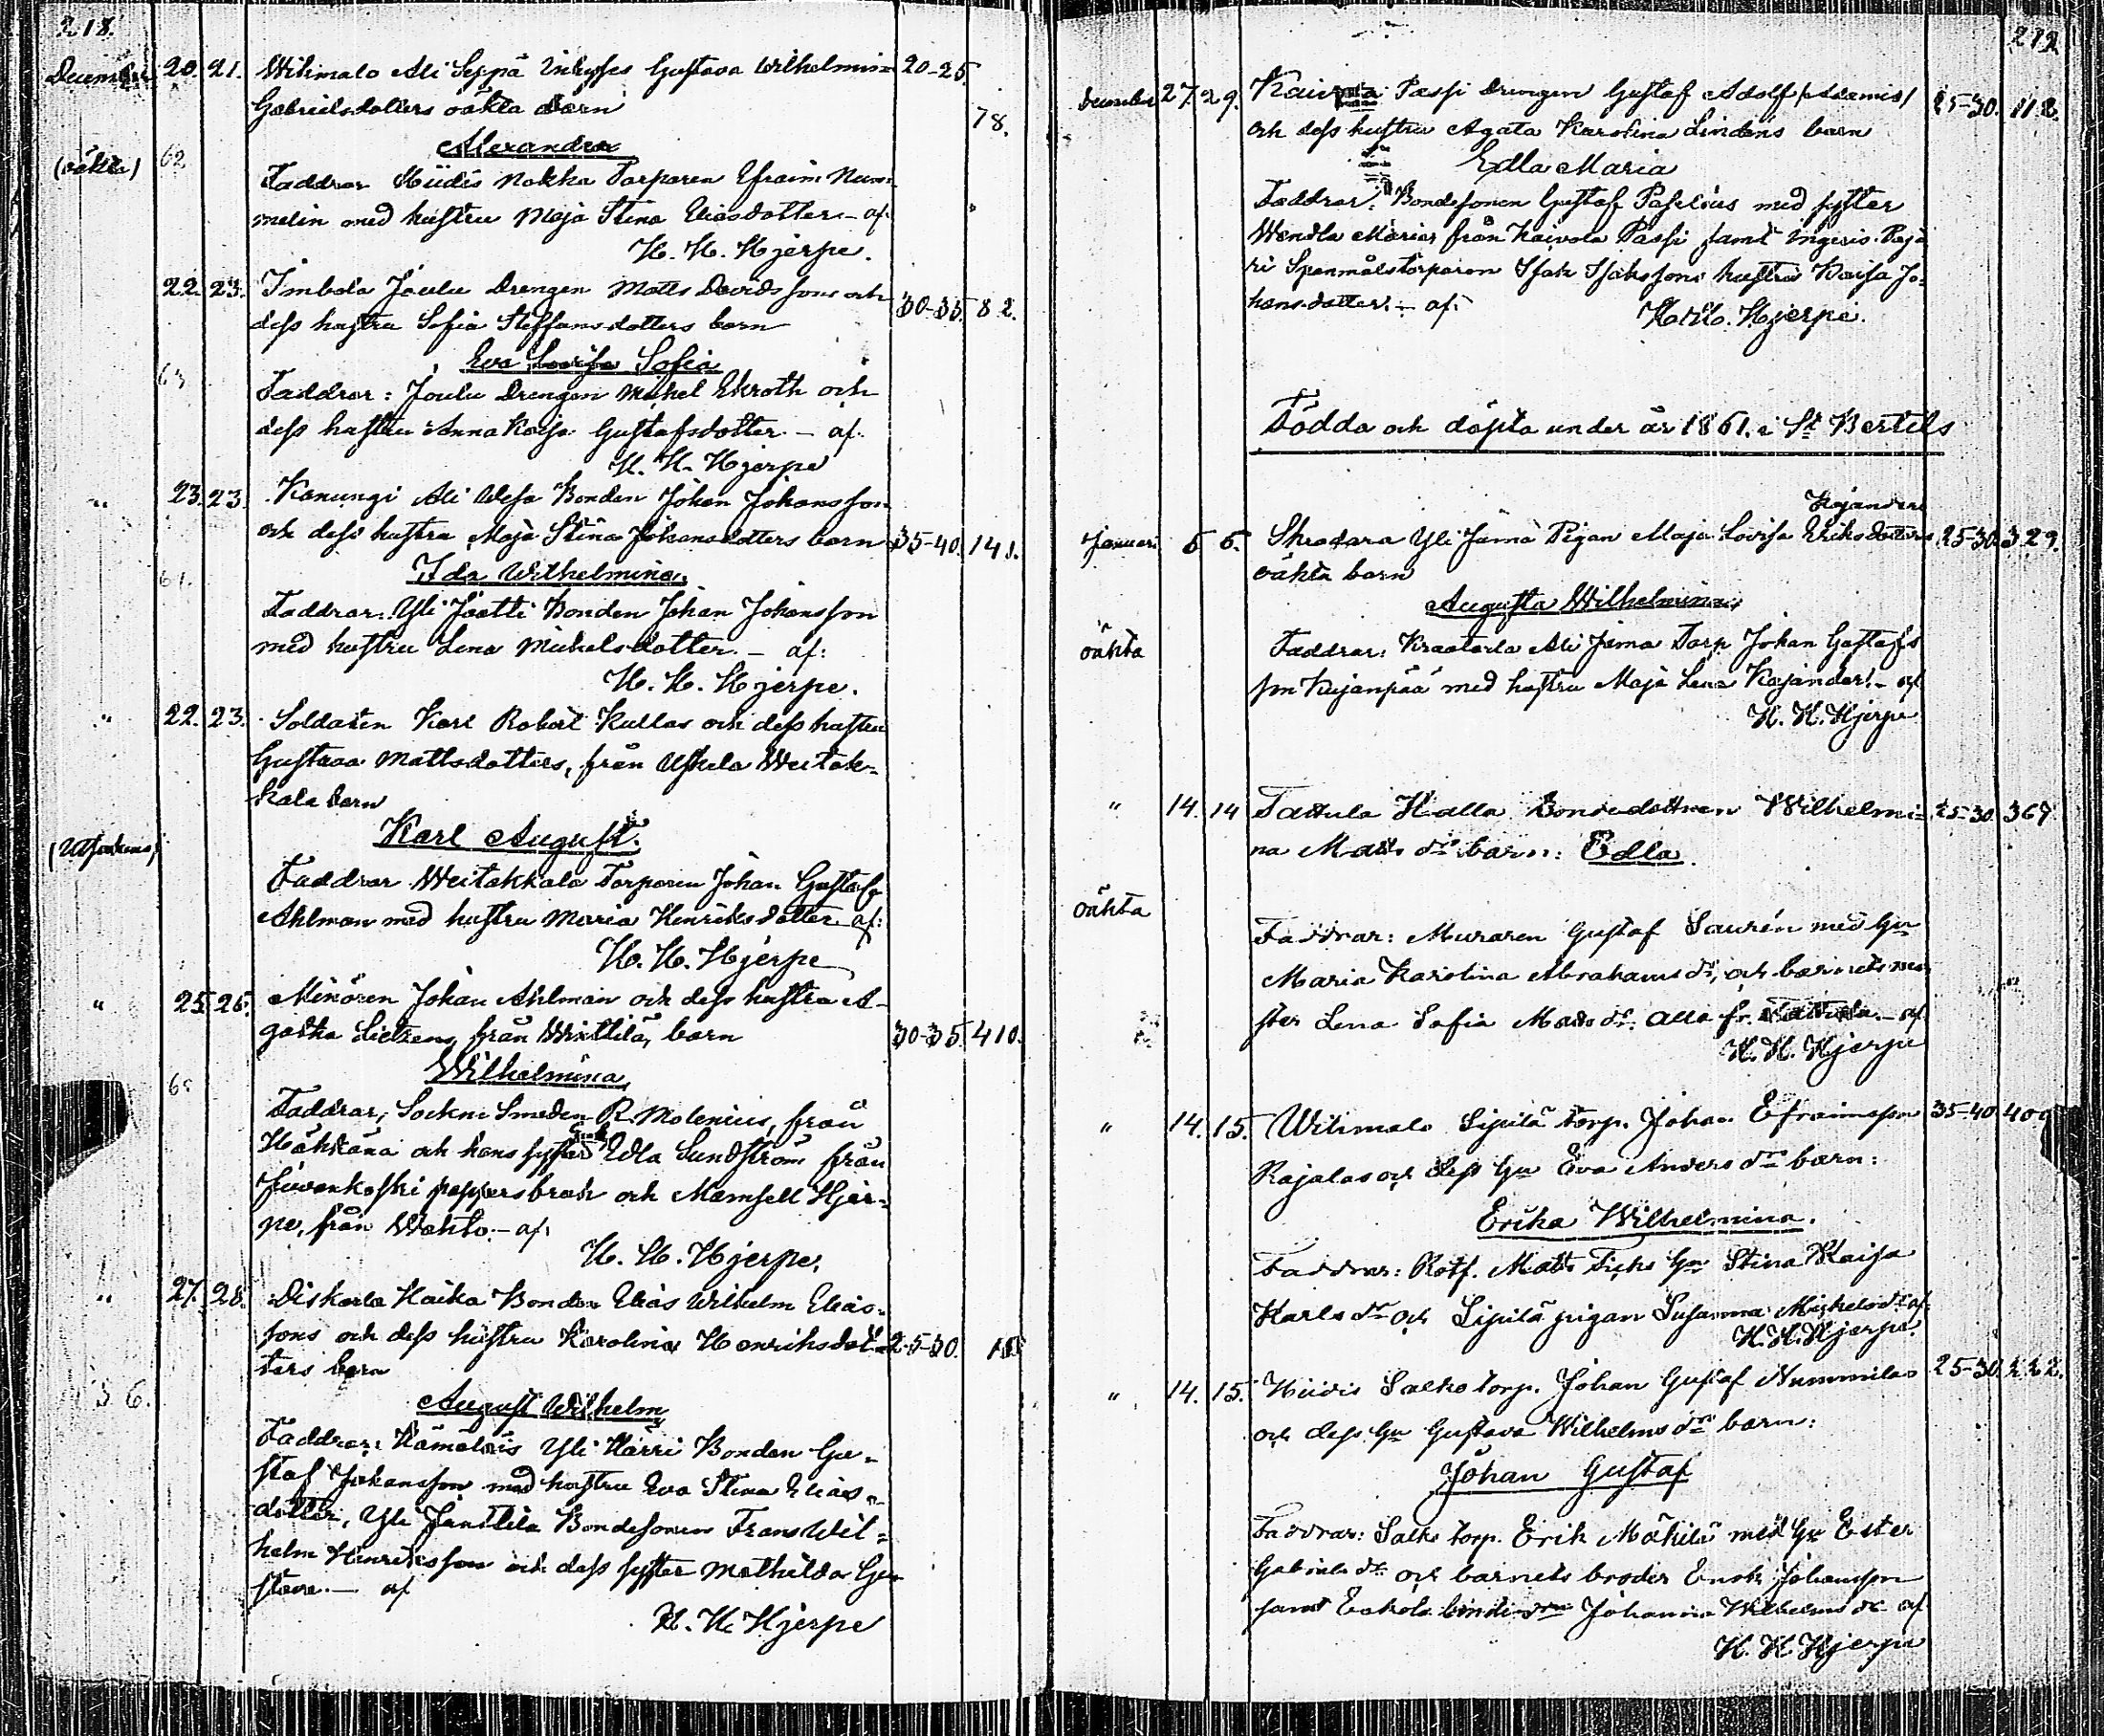 218.
December 20. 21. Wihimalo Ali Seppä Inhyses Gustava Wilhelmin= 20-25
Gabrielsdotters oäkta barn 78.
Alexandra
(oäkta) 62 Faddrar Hiidis Nokka Torparen Efraim Num=
melin med hustru Maja Stina Eliasdotter - af
H. H. Hjerpe.
22. 23. Imbola Joulu Drengen Matts Davidssons och 30-35. 82.
dess hustru Sofia Steffansdotters barn
Eva Lovisa Sofia
63 Faddrar: Joulu Drengen Mickel Ekroth och
dess hustru Anna Kajsa Gustafsdotter - af.
H. H. Hjerpe
" 23. 23. Kanungi Ali Wesa Bonden Johan Johansson
och dess hustru Maja Stina Johansdotters barn 35-40. 141.
Ida Wilhelmina
Faddrar: Yli Jaatti Bonden Johan Johansson
med hustru Lena Mickelsdotter. - af:
H. H. Hjerpe.
" 22. 23. Soldaten Karl Robert Kullas och dess hustru
Gustava Mattsdotters, från Uskela Weitak=
kala barn
Karl August.
Faddrar Weitakkala Torparen Johan Gustaf
Ahlman med hustru Maria Henriksdotter af:
H. H. Hjerpe
" 25. 26. Minören Johan Ahlman och dess hustru A-
gatha från barn 30-35. 410.
Wilhelmina
Faddrar, Sockne Smeden R. Molenius, från
och hans syster Edla Sundström från
Juvankoski pappersbruk och Mamsell Hjer=
pe, från Wahto. - af.
H. H. Hjerpe.
" 27. 28. Diskarla Haika Bonden Elias Wilhelm Elias-
sons och dess hustru Karolina Henriksdot= 25-30.
ters barn
August Wilhelm
Faddrar: Yli Härri Bonden Gu=
staf Johansson med hustru Eva Stina Elias=
dotter, Yli Jänttilä Bondesonen Frans Wil=
helm Henriksson och dess syster Mathilda Gu
stava. - af
H. H. Hjerpe
219
December 27. 29. Passi Drengen Gustaf Adolf (Adamis) 25-30. 112.
och dess hustru Agata Karolina Lindens barn
Edla Maria
Faddrar: Bondesonen Gustaf Paselius med syster
Wendla Maria, från Kaivola Passi samt Ingeris Paja
ri Spanmålstorparen Isak Isakssons hustru Kaisa Jo=
hansdotter. - af:
H. H. Hjerpe.
Födda och döpta under år 1861. i St Bertils
Kajanders
Januari 5 6. Yli Jama Pigan Maja Lovisa Eriksdotters 25-30. 329.
oäkta barn
Augusta Wilhelmina
oäkta Faddrar: Ali Jama Torp Johan Gustafs
son Kujanpää med hustru Maja Lena Kajander. - af
H. H. Hjerpe
" 14. 14 Tattula Halla Bondedottren Wilhelmi= 25-30. 369.
na Mats dr barn: Edla
oäkta
Faddrar: Muraren Gustaf Saurén med Hu
Maria Karolina Abrahams dr, och barnets mo
ster Lena Sofia Mats dr. alla fr. Tattula. - af
H. H. Hjerpe
" 14. 15. Wihimalo Sipilä torp. Johan Efraimsson 35-40. 409
Rajalas och dess Hu Eva Anders drs barn:
Erika Wilhelmina.
Faddrar: Rotf. Matts Hu Stina Kaisa
Karls dr och Sipilä pigan Susanna Mickels dr af
H. H. Hjerpe.
" 14. 15. Hiidis Salko torp. Johan Gustaf Nummilas 25-30. 222.
och dess Hu Gustava Wilhelms drs barn:
Johan Gustaf
Faddrar: Salko torp. Erik Mäkilä med Hu Ester
Gabriels dr och barnets broder Enok Johansson
samt Johanna Wilhelms dr af
H. H. Hjerpe